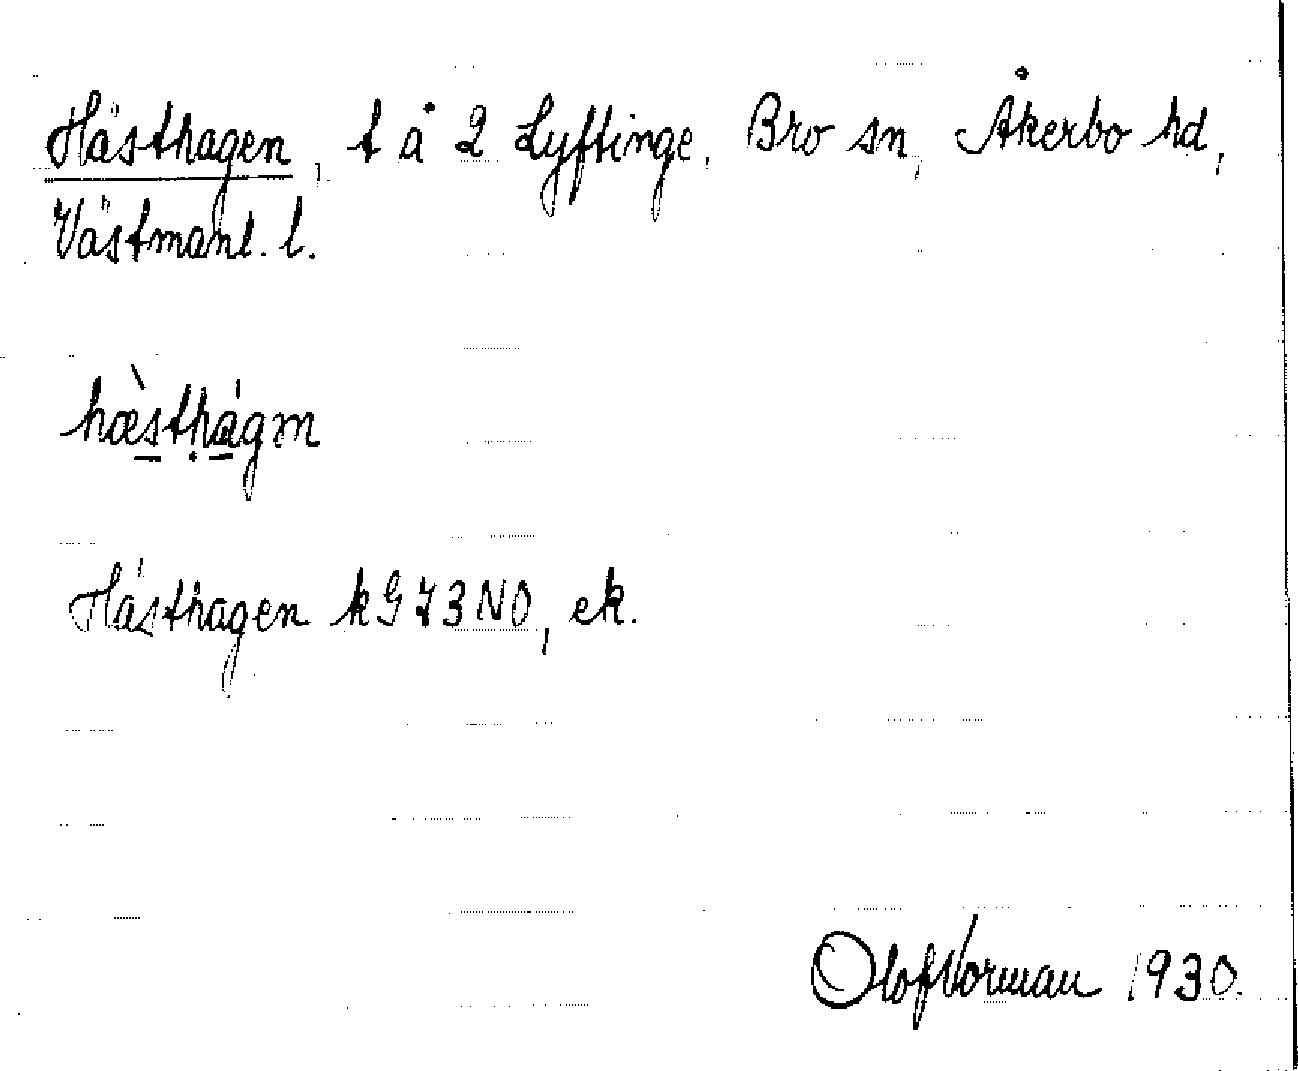 Hästhagen, t å 2 Lyftinge, Bro sn, Åkerbo hd,
Västmanl. l.
hæ̀sthágm
Hästhagen kG73NO, ek.
Olof Norman 1930.